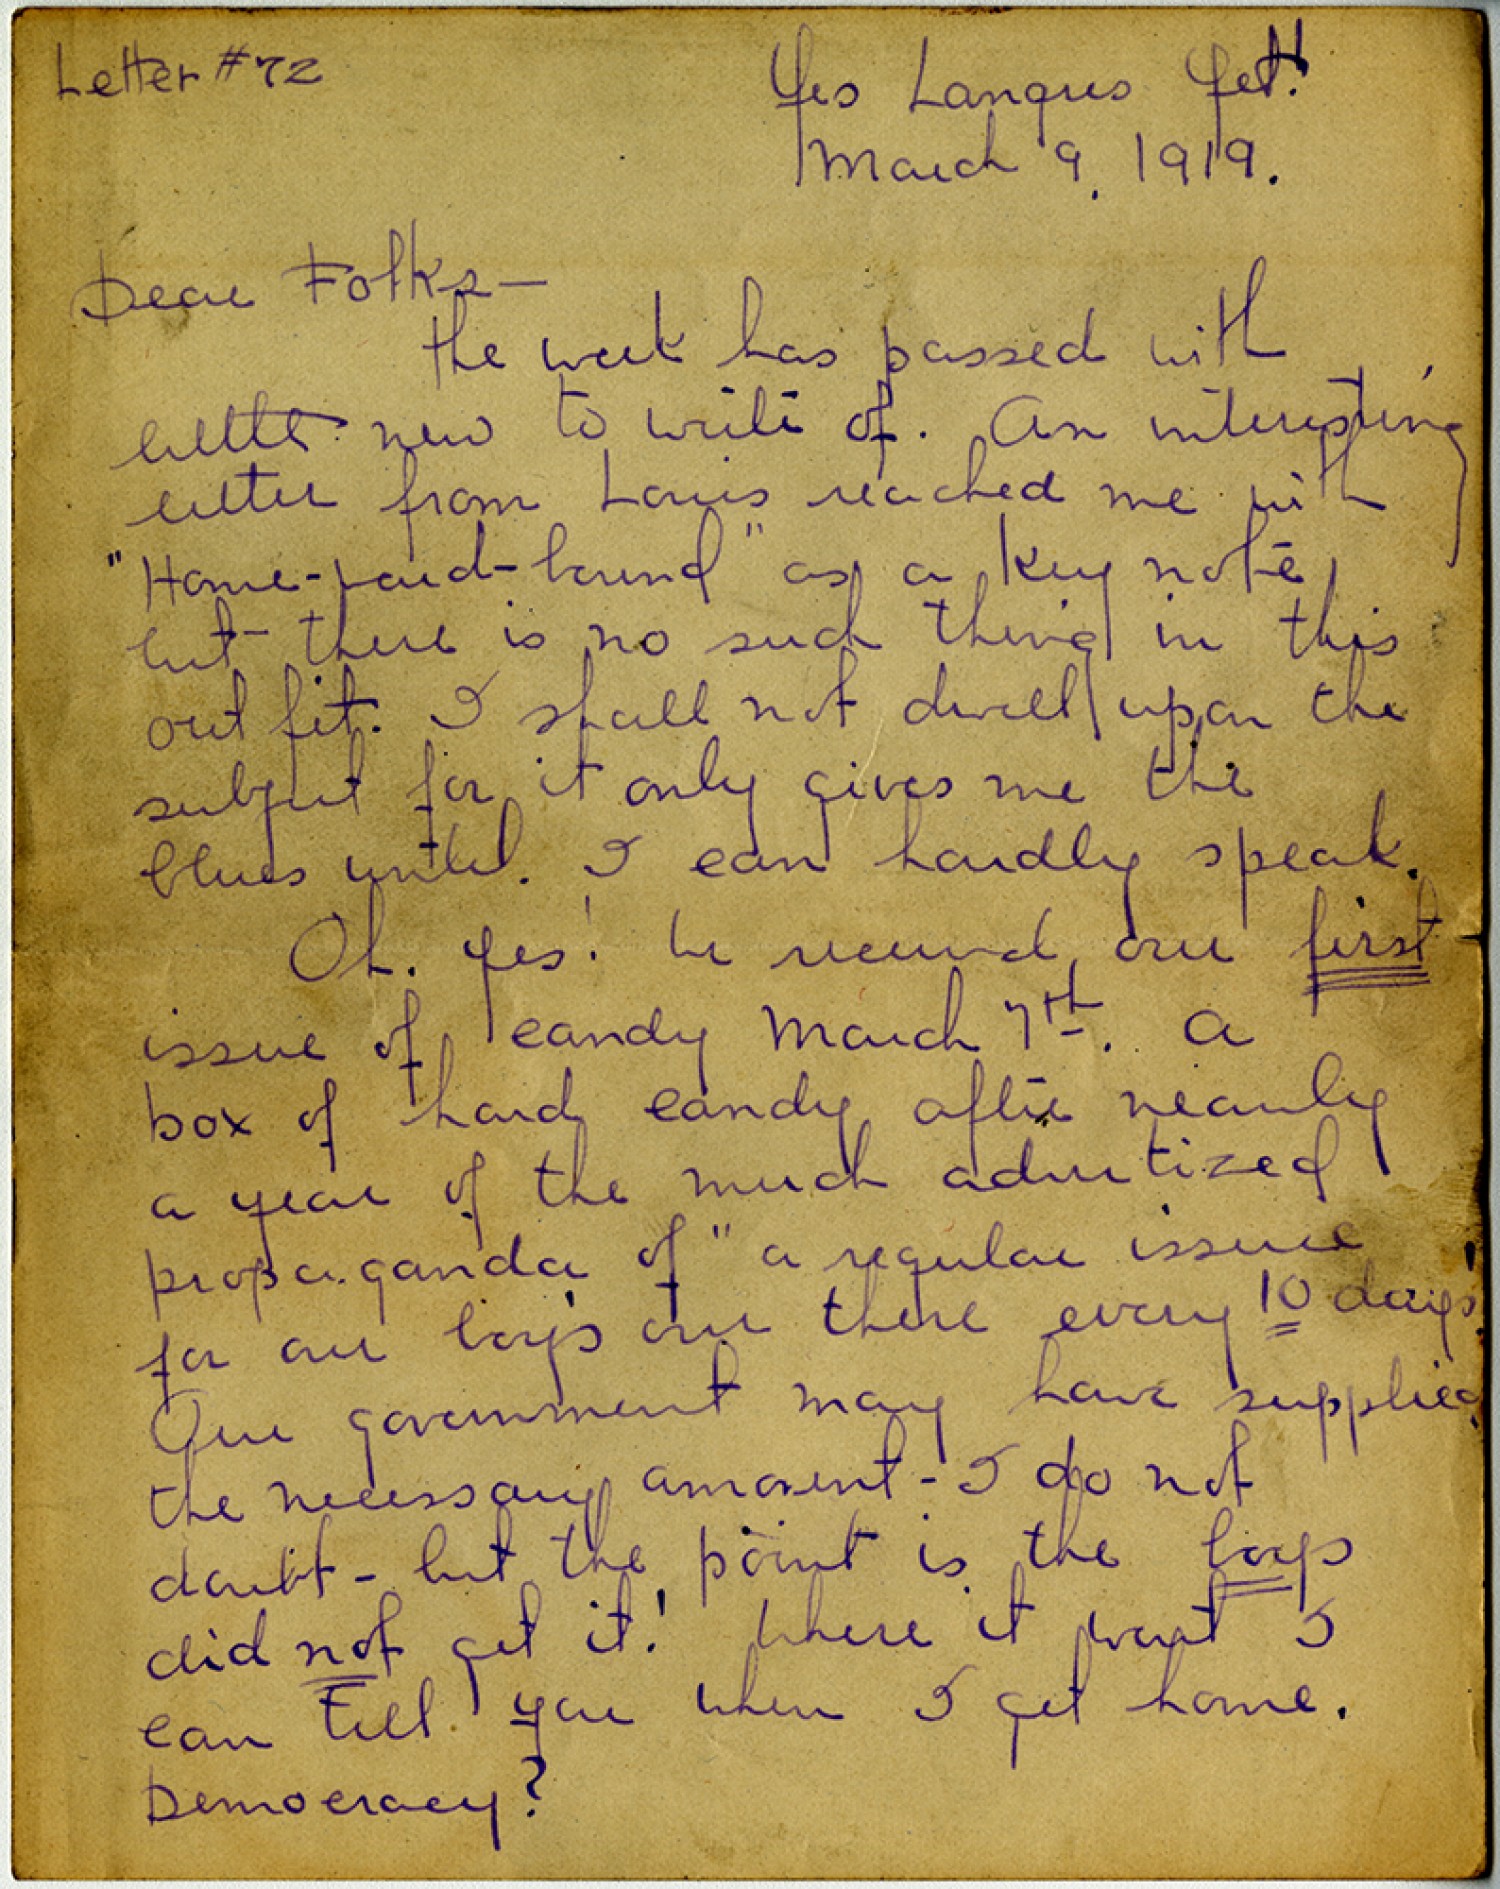 Letter #72
Yes Langres Yet!!
March 9, 1919.
Dear Folks—
the week has passed with
little new to write of. An interesting
letter from Louis reached me with
"Home-ward-bound" as a key note,
but there is no such thing in this
outfit. I shall not dwell upon the
subject for it only gives me the
blues until I can hardly speak.
Oh. yes! We received our first
issue of candy March 7th. A
box of hard candy after nearly
a year of the much advertized
propaganda of "a regular issue
for our boys over there every 10 days"!
Our government may have supplied
the necessary amount - I do not
doubt - but the point is the boys
did not get it! Where it went I
can tell you when I get home.
Democracy?